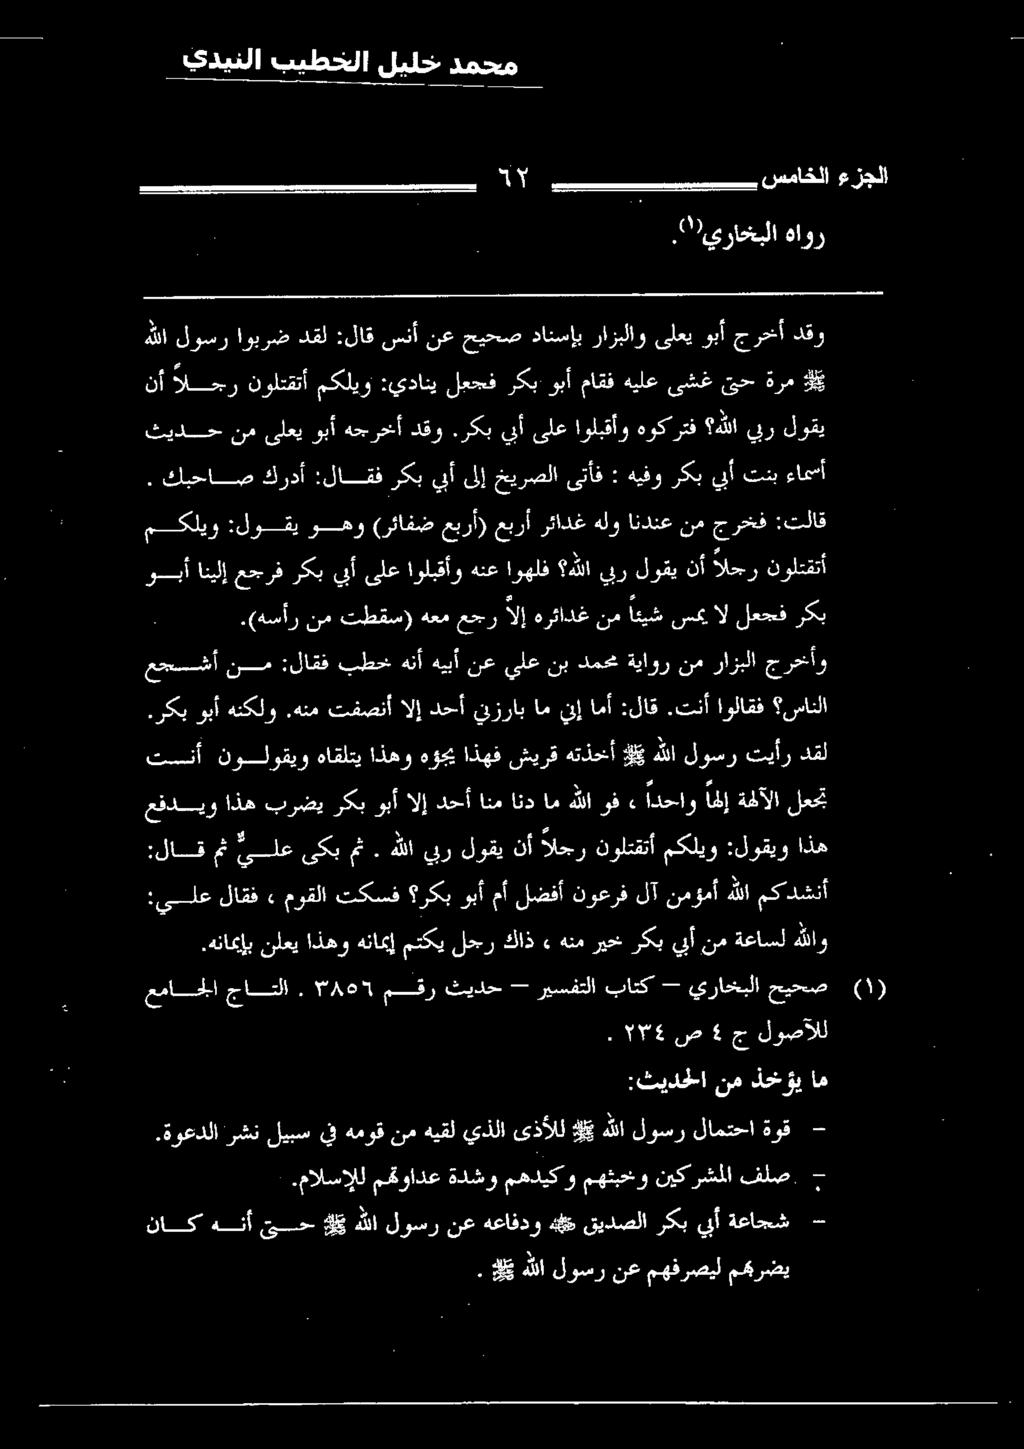 محمد خليل الخطيب النيدي
الجزء الخامس ٦٢
رواه البخاري(١).
وقد أخرج أبو يعلى والبزار بإسناد صحيح عن أنس قال: لقد ضربوا رسول الله
ﷺ مرة حتى غشى عليه فقام أبو بكر فجعل ينادي: ويلكم أتقتلون رجلاً أن
يقول ربي الله؟ فتركوه وأقبلوا على أبي بكر. وقد أخرجه أبو يعلى من حديث
أسماء بنت أبي بكر وفيه : فأتى الصريخ إلى أبي بكر فقال: أدرك صاحبك .
قالت: فخرج من عندنا وله غدائر أربع (أربع ضفائر) وهو يقول: ويلكم
أتقتلون رجلاً أن يقول ربي الله؟ فلهوا عنه وأقبلوا على أبي بكر فرجع إلينا أبو
بكر فجعل لا يمس شيئاً من غدائره إلاّ رجع معه (سقطت من رأسه).
وأخرج البزار من رواية محمد بن علي عن أبيه أنه خطب فقال: من أشجع
الناس؟ فقالوا أنت. قال: أما إني ما بارزني أحد إلا أنصفت منه. ولكنه أبو بكر.
لقد رأيت رسول الله ﷺ أخذته قريش فهذا يجؤه وهذا يتلقاه ويقولون أنت
تجعل الآلهة إلهاً واحداً ، فو الله ما دنا منا أحد إلا أبو بكر يضرب هذا ويدفع
هذا ويقول: ويلكم أتقتلون رجلاً أن يقول ربي الله . ثم بكى عليٌّ ثم قال:
أنشدكم الله أمؤمن آل فرعون أفضل أم أبو بكر؟ فسكت القوم ، فقال علي:
والله لساعة من أبي بكر خير منه ، ذاك رجل يكتم إيمانه وهذا يعلن بإيمانه.
(١) صحيح البخاري – كتاب التفسير – حديث رقم ٣٨٥٦ . التاج الجامع
للآصول ج ٤ ص ٢٣٤ .
ما يؤخذ من الحديث:
– قوة احتمال رسول الله ﷺ للأذى الذي لقيه من قومه في سبيل نشر الدعوة.
– صلف المشركين وخبثهم وكيدهم وشدة عداوتهم للإسلام.
– شجاعة أبي بكر الصديق ﷺ ودفاعه عن رسول الله ﷺ حتى أنه كان
يضربهم ليصرفهم عن رسول الله ﷺ .